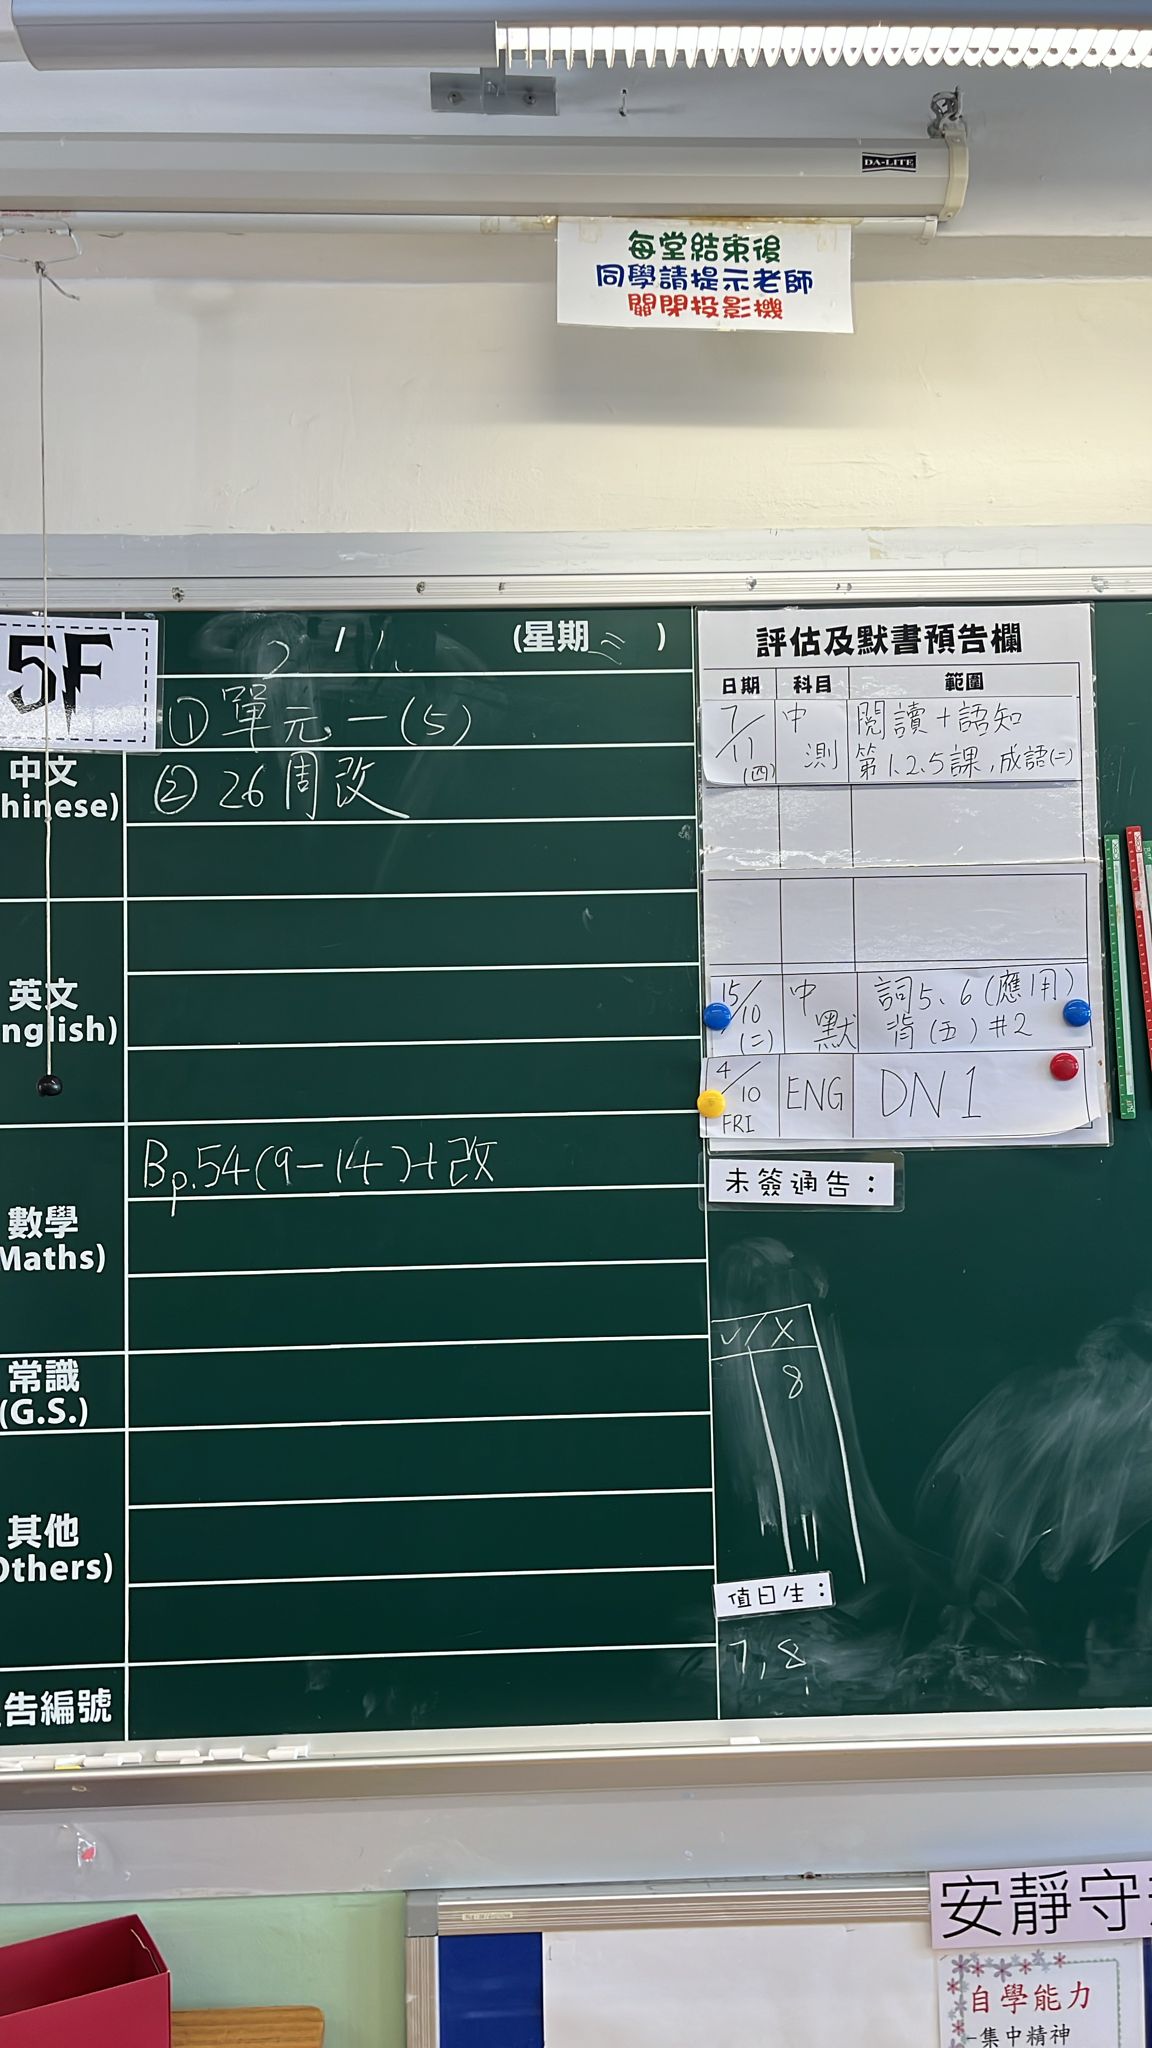 DA-LITE
每堂結束後
同學請提示老師
關閉投影機
5F
(星期三)
① 單元一(5)
中文
hinese)
② 26周改
英文
nglish)
數學
Maths)
Bp.54(9-14)+改
常識
(G.S.)
其他
Others)
告編號
評估及默書預告欄
日期 科目 範圍
7/11 (四) 中測 閱讀+語知
第1.2.5課,成語(二)
15/10 (二) 中默 詞5、6(應用)
背(五)#2
4/10 FRI ENG DN 1
未簽通告：
✓/X
8
值日生：
7,8
安靜守
自學能力
-集中精神